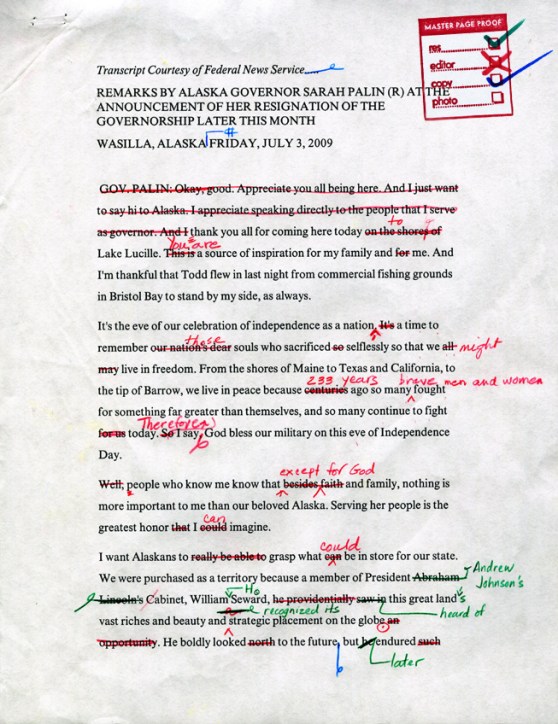 MASTER PAGE PROOF
res.
editor
copy
photo
Transcript Courtesy of Federal News Service.
REMARKS BY ALASKA GOVERNOR SARAH PALIN (R) AT THE
ANNOUNCEMENT OF HER RESIGNATION OF THE
GOVERNORSHIP LATER THIS MONTH
#
WASILLA, ALASKA FRIDAY, JULY 3, 2009
GOV. PALIN: Okay, good. Appreciate you all being here. And I just want
to say hi to Alaska. I appreciate speaking directly to the people that I serve
as governor. And I thank you all for coming here today on the shores of
to
Lake Lucille. This is a source of inspiration for my family and for me. And
You are
I'm thankful that Todd flew in last night from commercial fishing grounds
in Bristol Bay to stand by my side, as always.
It's the eve of our celebration of independence as a nation. It's a time to
remember our nation's dear souls who sacrificed so selflessly so that we all
those
might
may live in freedom. From the shores of Maine to Texas and California, to
the tip of Barrow, we live in peace because centuries ago so many fought
233 years
brave men and women
for something far greater than themselves, and so many continue to fight
for us today. So I say, God bless our military on this eve of Independence
Therefore,
Day.
Well, people who know me know that besides faith and family, nothing is
except for God
more important to me than our beloved Alaska. Serving her people is the
greatest honor that I could imagine.
can
I want Alaskans to really be able to grasp what can be in store for our state.
could
We were purchased as a territory because a member of President Abraham
Andrew
Johnson's
Lincoln's Cabinet, William Seward, he providentially saw in this great land's
H.
recognized its
heard of
vast riches and beauty and strategic placement on the globe an
opportunity. He boldly looked north to the future, but he endured such
later